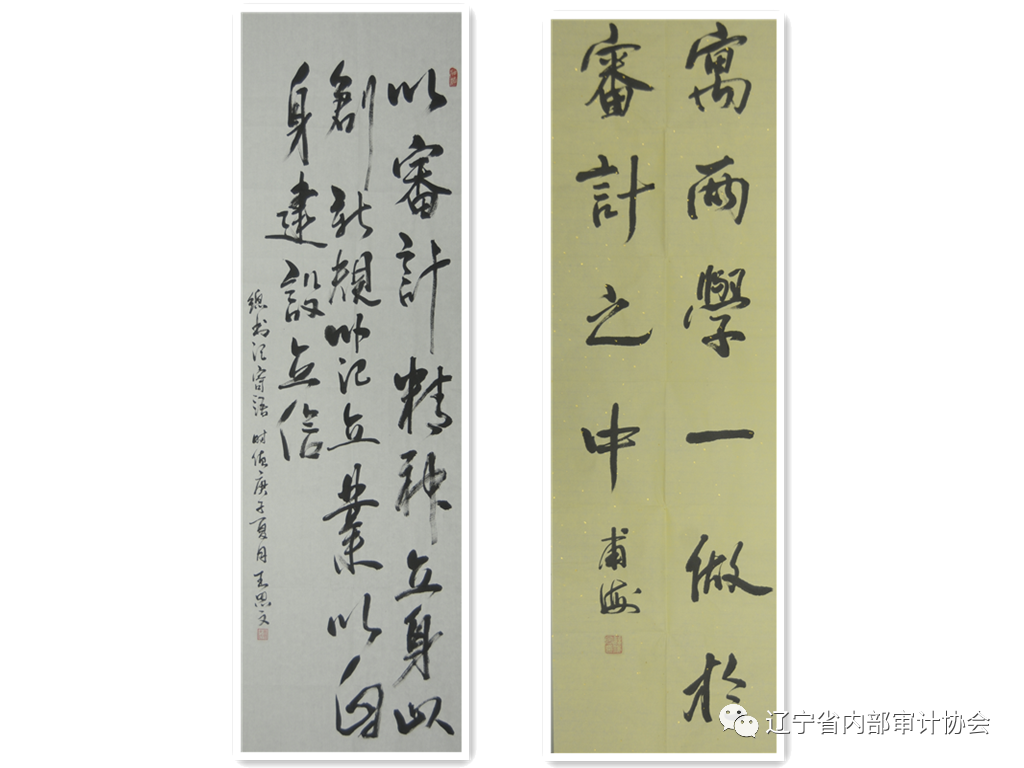 以審計精神立身以
創新規範立業以自
身建設立信
總书记寄語 时值庚子夏月 思文
寓兩學一做於
審計之中
甫海
辽宁省内部审计协会